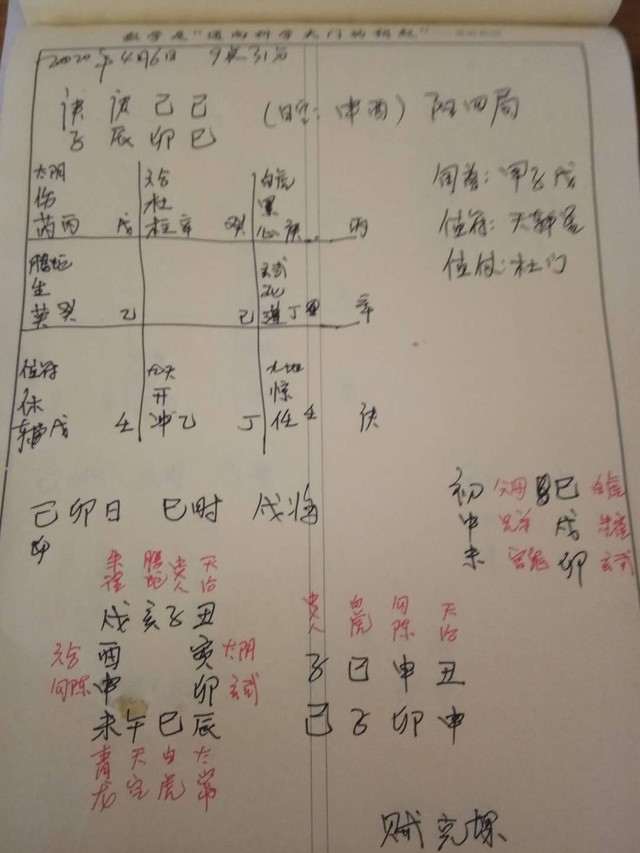 数学是“通向科学大门的钥匙”
2020年4月6日 9点31分
庚 庚 己 己 (日空:申酉) 阳四局
子 辰 卯 巳
太阴 六合 白虎 旬首:甲子戊
伤 杜 景
芮丙 戊 柱辛 癸 心庚 丙 值符:天辅星
腾蛇 玄武 值使:杜门
生 死
英癸 乙 己 蓬丁 辛
值符 九天 九地
休 开 惊
辅戊 壬 冲乙 丁 任壬 庚
己卯日 巳时 戌将
卯
初 父母 巳 白虎
中 兄弟 戌 朱雀
末 官鬼 卯 玄武
朱雀 腾蛇 贵人 天后
戌 亥 子 丑
六合 酉 寅 太阴
勾陈 申 卯 玄武
未 午 巳 辰
青龙 天空 白虎 太常
贵人 白虎 勾陈 天后
子 巳 申 丑
己 子 卯 申